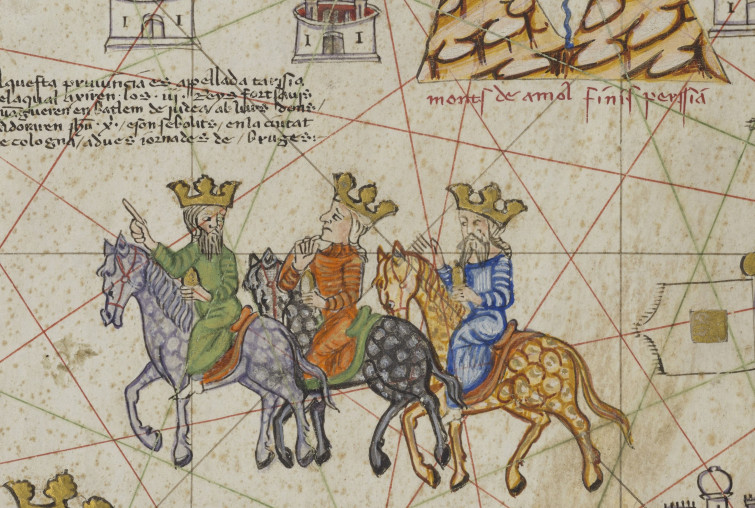 I I
I I
I
questa provincia es appellada tarssia
elaqual axiren los iii reys fort savis
uagueren en batlem de judea ab lurs dons
adoraren ihu x e son sebolits en la ciutat
e cologna a dues iornades de bruges
monts de amol finis perssia